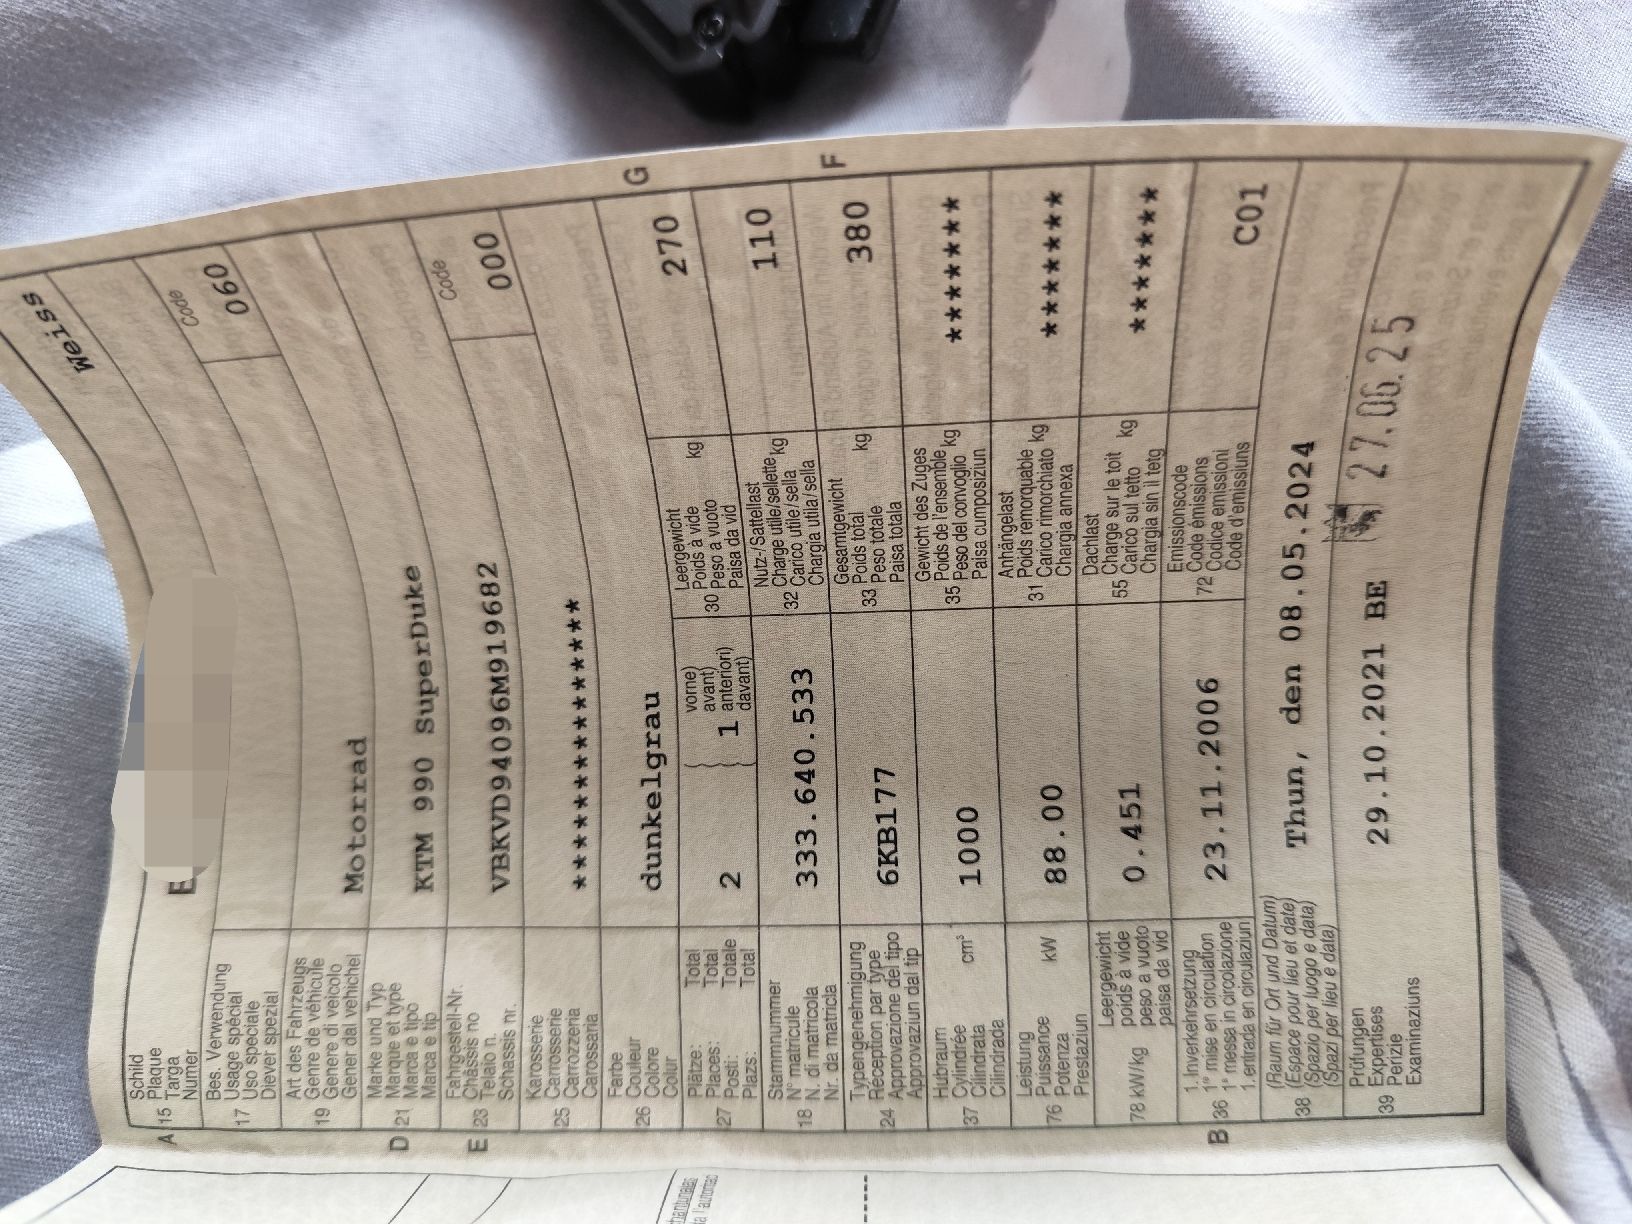 A 15 Schild
Plaque
Targa
Numer
Weiss
17 Bes. Verwendung
Usage spécial
Uso speciale
Diever spezial
Code
060
19 Art des Fahrzeugs
Genre de véhicule
Genere di veicolo
Gener dal vehichel
Motorrad
D 21 Marke und Typ
Marque et type
Marca e tipo
Marca e tip
KTM 990 SuperDuke
Code
000
E 23 Fahrgestell-Nr.
Châssis no
Telaio n.
Schassis nr.
VBKVD94096M919682
25 Karosserie
Carrosserie
Carrozzeria
Carossaria
******************
26 Farbe
Couleur
Colore
Colur
dunkelgrau
27 Plätze: Total
Places: Total
Posti: Totale
Plazs: Total
2
vorne)
avant)
anteriori)
davant)
1
30 Leergewicht
Poids à vide
Peso a vuoto
Paisa da vid
kg
270
G
18 Stammnummer
N° matricule
N. di matricola
Nr. da matricla
333.640.533
32 Nutz-/Sattellast
Charge utile/sellette
Carico utile/sella
Chargia utila/sella
kg
110
24 Typengenehmigung
Réception par type
Approvazione del tipo
Approvaziun dal tip
6KB177
33 Gesamtgewicht
Poids total
Peso totale
Paisa totala
kg
380
F
37 Hubraum
Cylindrée
Cilindrata
Cilindrada
cm³
1000
35 Gewicht des Zuges
Poids de l'ensemble
Peso del convoglio
Paisa cumposiziun
kg
*******
76 Leistung
Puissance
Potenza
Prestaziun
kW
88.00
31 Anhängelast
Poids remorquable
Carico rimorchiato
Chargia annexa
kg
*******
78 kW/kg Leergewicht
poids à vide
peso a vuoto
paisa da vid
0.451
55 Dachlast
Charge sur le toit
Carico sul tetto
Chargia sin il tetg
kg
*******
B 36 1. Inverkehrsetzung
1re mise en circulation
1a messa in circolazione
1. entrada en circulaziun
23.11.2006
72 Emissionscode
Code émissions
Codice emissioni
Code d'emissiuns
C01
38 (Raum für Ort und Datum)
(Espace pour lieu et date)
(Spazio per luogo e data)
(Spazi per lieu e data)
Thun, den 08.05.2024
39 Prüfungen
Expertises
Perizie
Examinaziuns
29.10.2021 BE
27.06.25